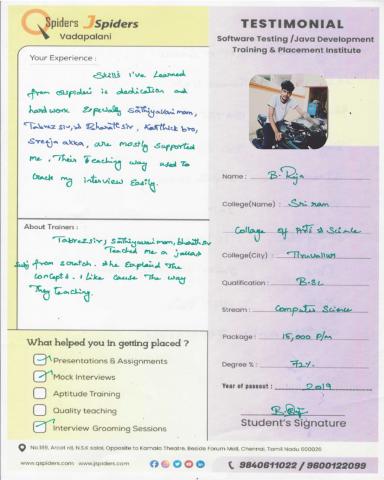 QSpiders JSpiders
Vadapalani
TESTIMONIAL
Software Testing /Java Development
Training & Placement Institute
Your Experience :
Skills I've Learned
from Qspiders is dedication and
hardwork Especially Sathiyavani mam,
Tabrez sir, Bharath sir, Karthick bro,
Sreeja akka, are mostly supported
me. Their Teaching way used to
Crack my interview Easily.
About Trainers :
Tabrez sir, Sathiyavani mam, bharath sir
Teached me a
Subj from scratch. She Explained The
Concepts. I like cause The way
They teaching.
What helped you in getting placed ?
Presentations & Assignments
Mock Interviews
Aptitude Training
Quality teaching
Interview Grooming Sessions
Name : B. Raja
College(Name) : Sri ram
College of Arts & Science
College(City) : Tiruvallur
Qualification : B.SC
Stream : Computer Science
Package : 15,000 P/m
Degree % : 72%
Year of passout : 2019
Student's Signature
No.189, Arcot rd, N.S.K salai, Opposite to Kamala Theatre, Beside Forum Mall, Chennai, Tamil Nadu 600026
www.qspiders.com www.jspiders.com
9840611022 / 9600122099